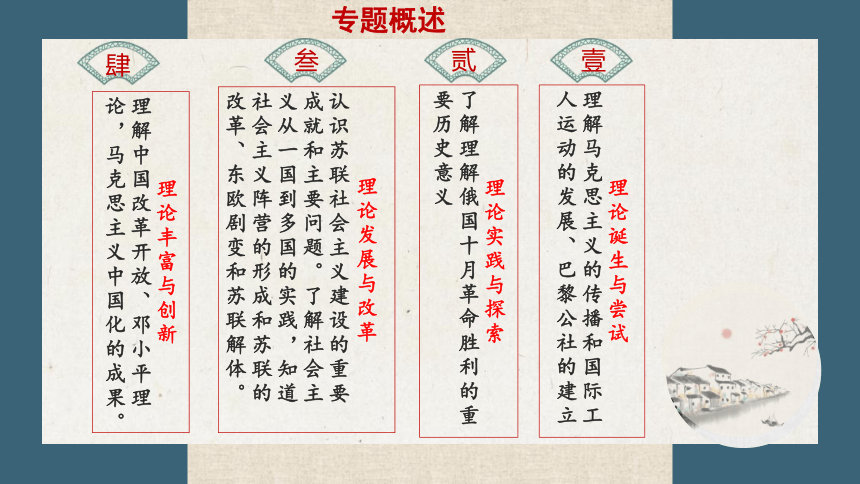 专题概述
壹
理论诞生与尝试
理解马克思主义的传播和国际工
人运动的发展、巴黎公社的建立
贰
理论实践与探索
了解理解俄国十月革命胜利的重
要历史意义
叁
理论发展与改革
认识苏联社会主义建设的重要
成就和主要问题。了解社会主
义从一国到多国的实践，知道
社会主义阵营的形成和苏联的
改革、东欧剧变和苏联解体。
肆
理论丰富与创新
理解中国改革开放、邓小平理
论，马克思主义中国化的成果。